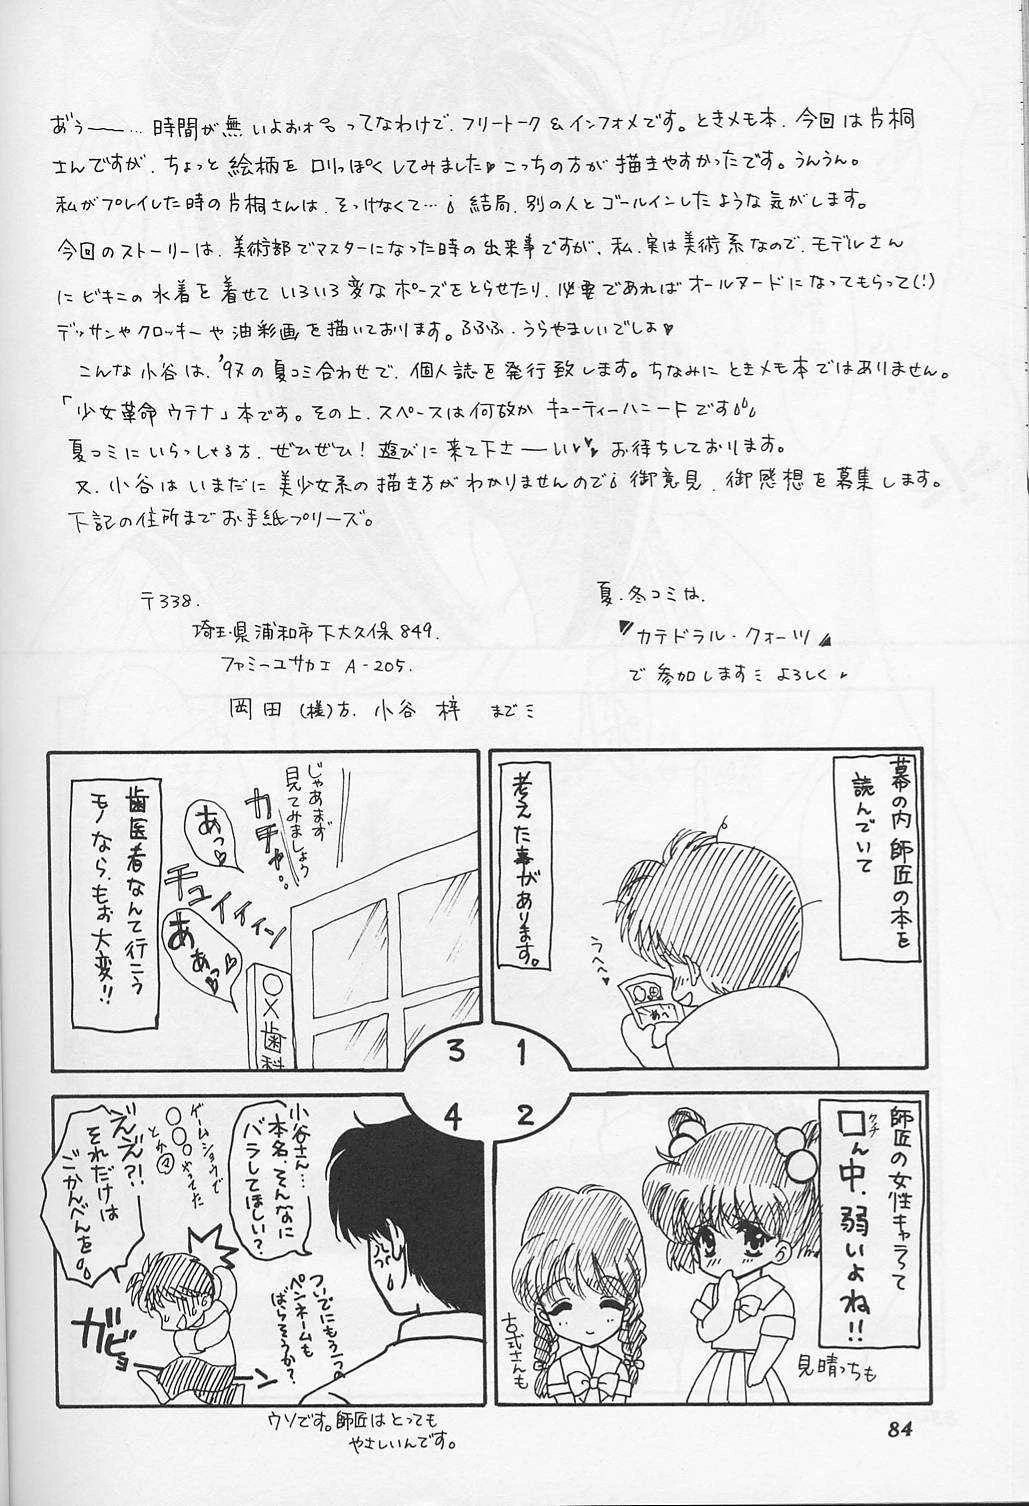 あ゛ぅ——… 時間が無いよおォ。ってなわけで、フリートーク&インフォメです。ときメモ本、今回は片桐
さんですが、ちょっと絵柄をロリっぽくしてみました♥こっちの方が描きやすかったです。うんうん。
私がプレイした時の片桐さんは、そっけなくて…、結局、別の人とゴールインしたような気がします。
今回のストーリーは、美術部でマスターになった時の出来事ですが、私、実は美術系なので、モデルさん
にビキニの水着を着せていろいろ変なポーズをとらせたり、必要であればオールヌードになってもらって(!)
デッサンやクロッキーや油彩画を描いております。ふふふ、うらやましいでしょ♥
こんな小谷は、'97の夏コミ合わせで、個人誌を発行致します。ちなみにときメモ本ではありません。
「少女革命ウテナ」本です。その上、スペースは何故かキューティーハニートです
夏コミにいらっしゃる方、ぜひぜひ!遊びに来て下さーい♥♥お待ちしております。
又、小谷はいまだに美少女系の描き方がわかりませんので、御意見、御感想を募集します。
下記の住所までお手紙プリーズ。
〒338.
埼玉県浦和市下大久保849.
ファミーユサカエ A-205.
岡田(様)方、小谷 梓 まで
夏、冬コミは、
カテドラル・クォーツ
で参加します よろしく♥
幕の内師匠の本を
読んでいて
うへへ♥
考えた事があります。
1
師匠の女性キャラって
口ん中、弱いよね!!
クチ
見晴っちも
古式さんも
2
じゃあまず
見てみましょう
カチャ…
あっ♥
チュイイィン
あぁっ♥♥
〇×歯科
歯医者なんて行こう
モノなら、もお大変!!
3
小谷さん…
本名、そんなに
バラしてほしい?
ついでにもう一つの
ペンネームも
ばらそうか?
ゲームショウで
〇〇〇やってた
とか㋮
ええ?!
それだけは
ごかんべんを
ガビョーン
4
ウソです。師匠はとっても
やさしいんです。
84